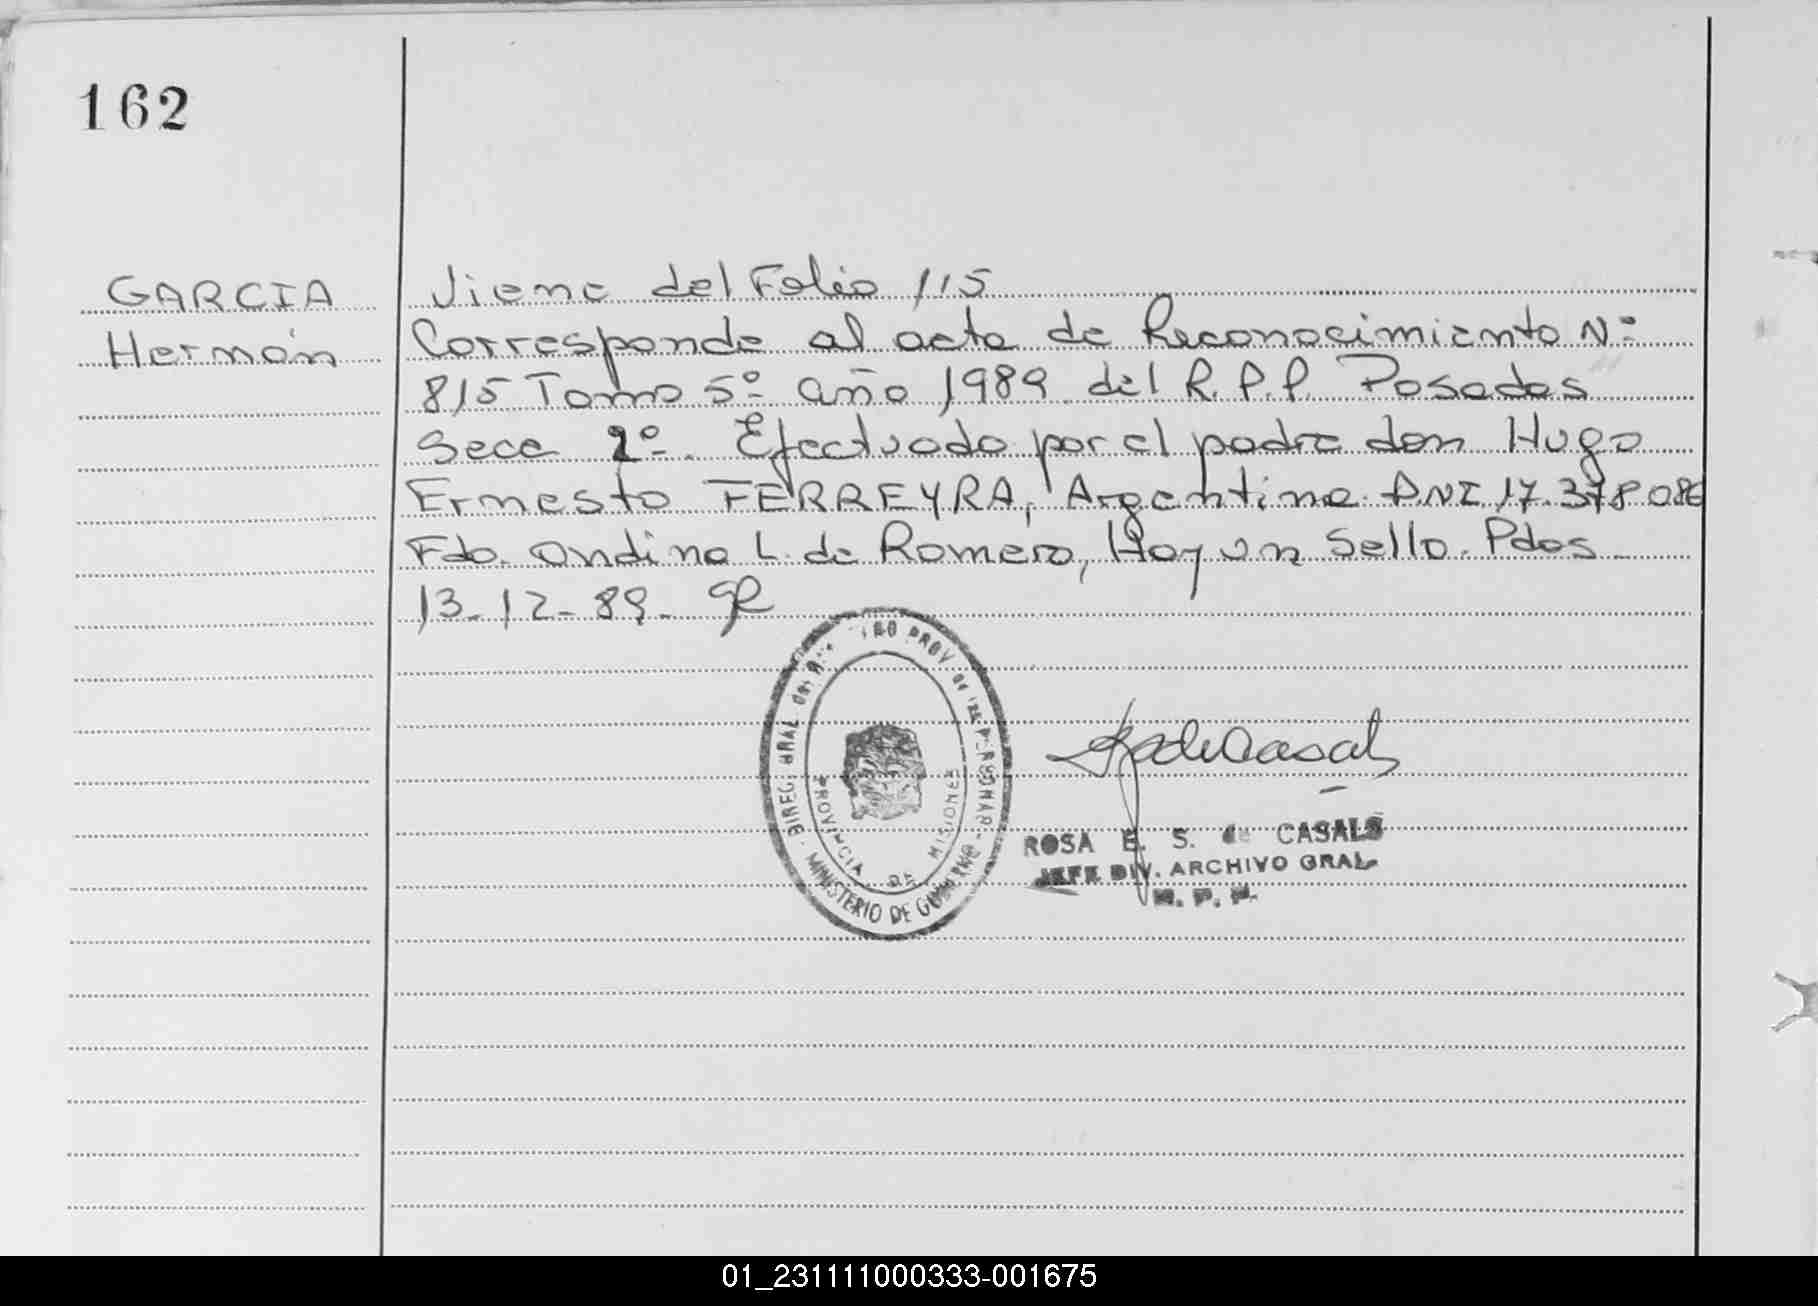 162
GARCIA
Hernán
Viene del Folio 115
Corresponde al acta de Reconocimiento Nº
815 Tomo 5º año 1989 del R.P.P. Posadas
Secc 2º. Efectuado por el padre don Hugo
Ernesto FERREYRA, Argentino DNI 17.378.086
Fdo. Ondina L. de Romero, Hay un Sello. Pdas
13-12-89-
PROV. de las PERSONAS
DIREC. GRAL. del
MINISTERIO DE GOBIERNO
PROVINCIA DE MISIONES
ROSA E. S. de CASALS
JEFE DIV. ARCHIVO GRAL
R. P. P.
01_231111000333-001675